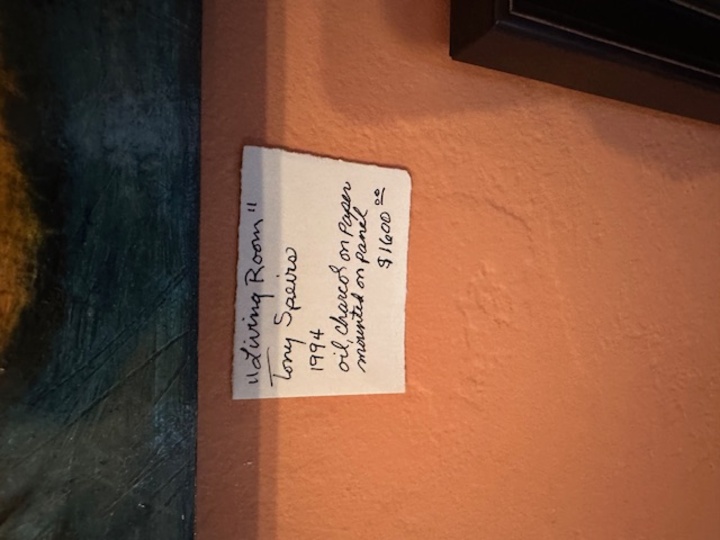 "Living Room"
Tony Speirs
1994
oil, charcol on Paper
mounted on panel
$1600.00